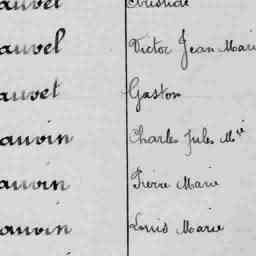 auvel Aristide
auvel Victor Jean Mari
auvet Gaston
auvin Charles Jules Mie
auvin Pierre Marie
auvin Louis Marie